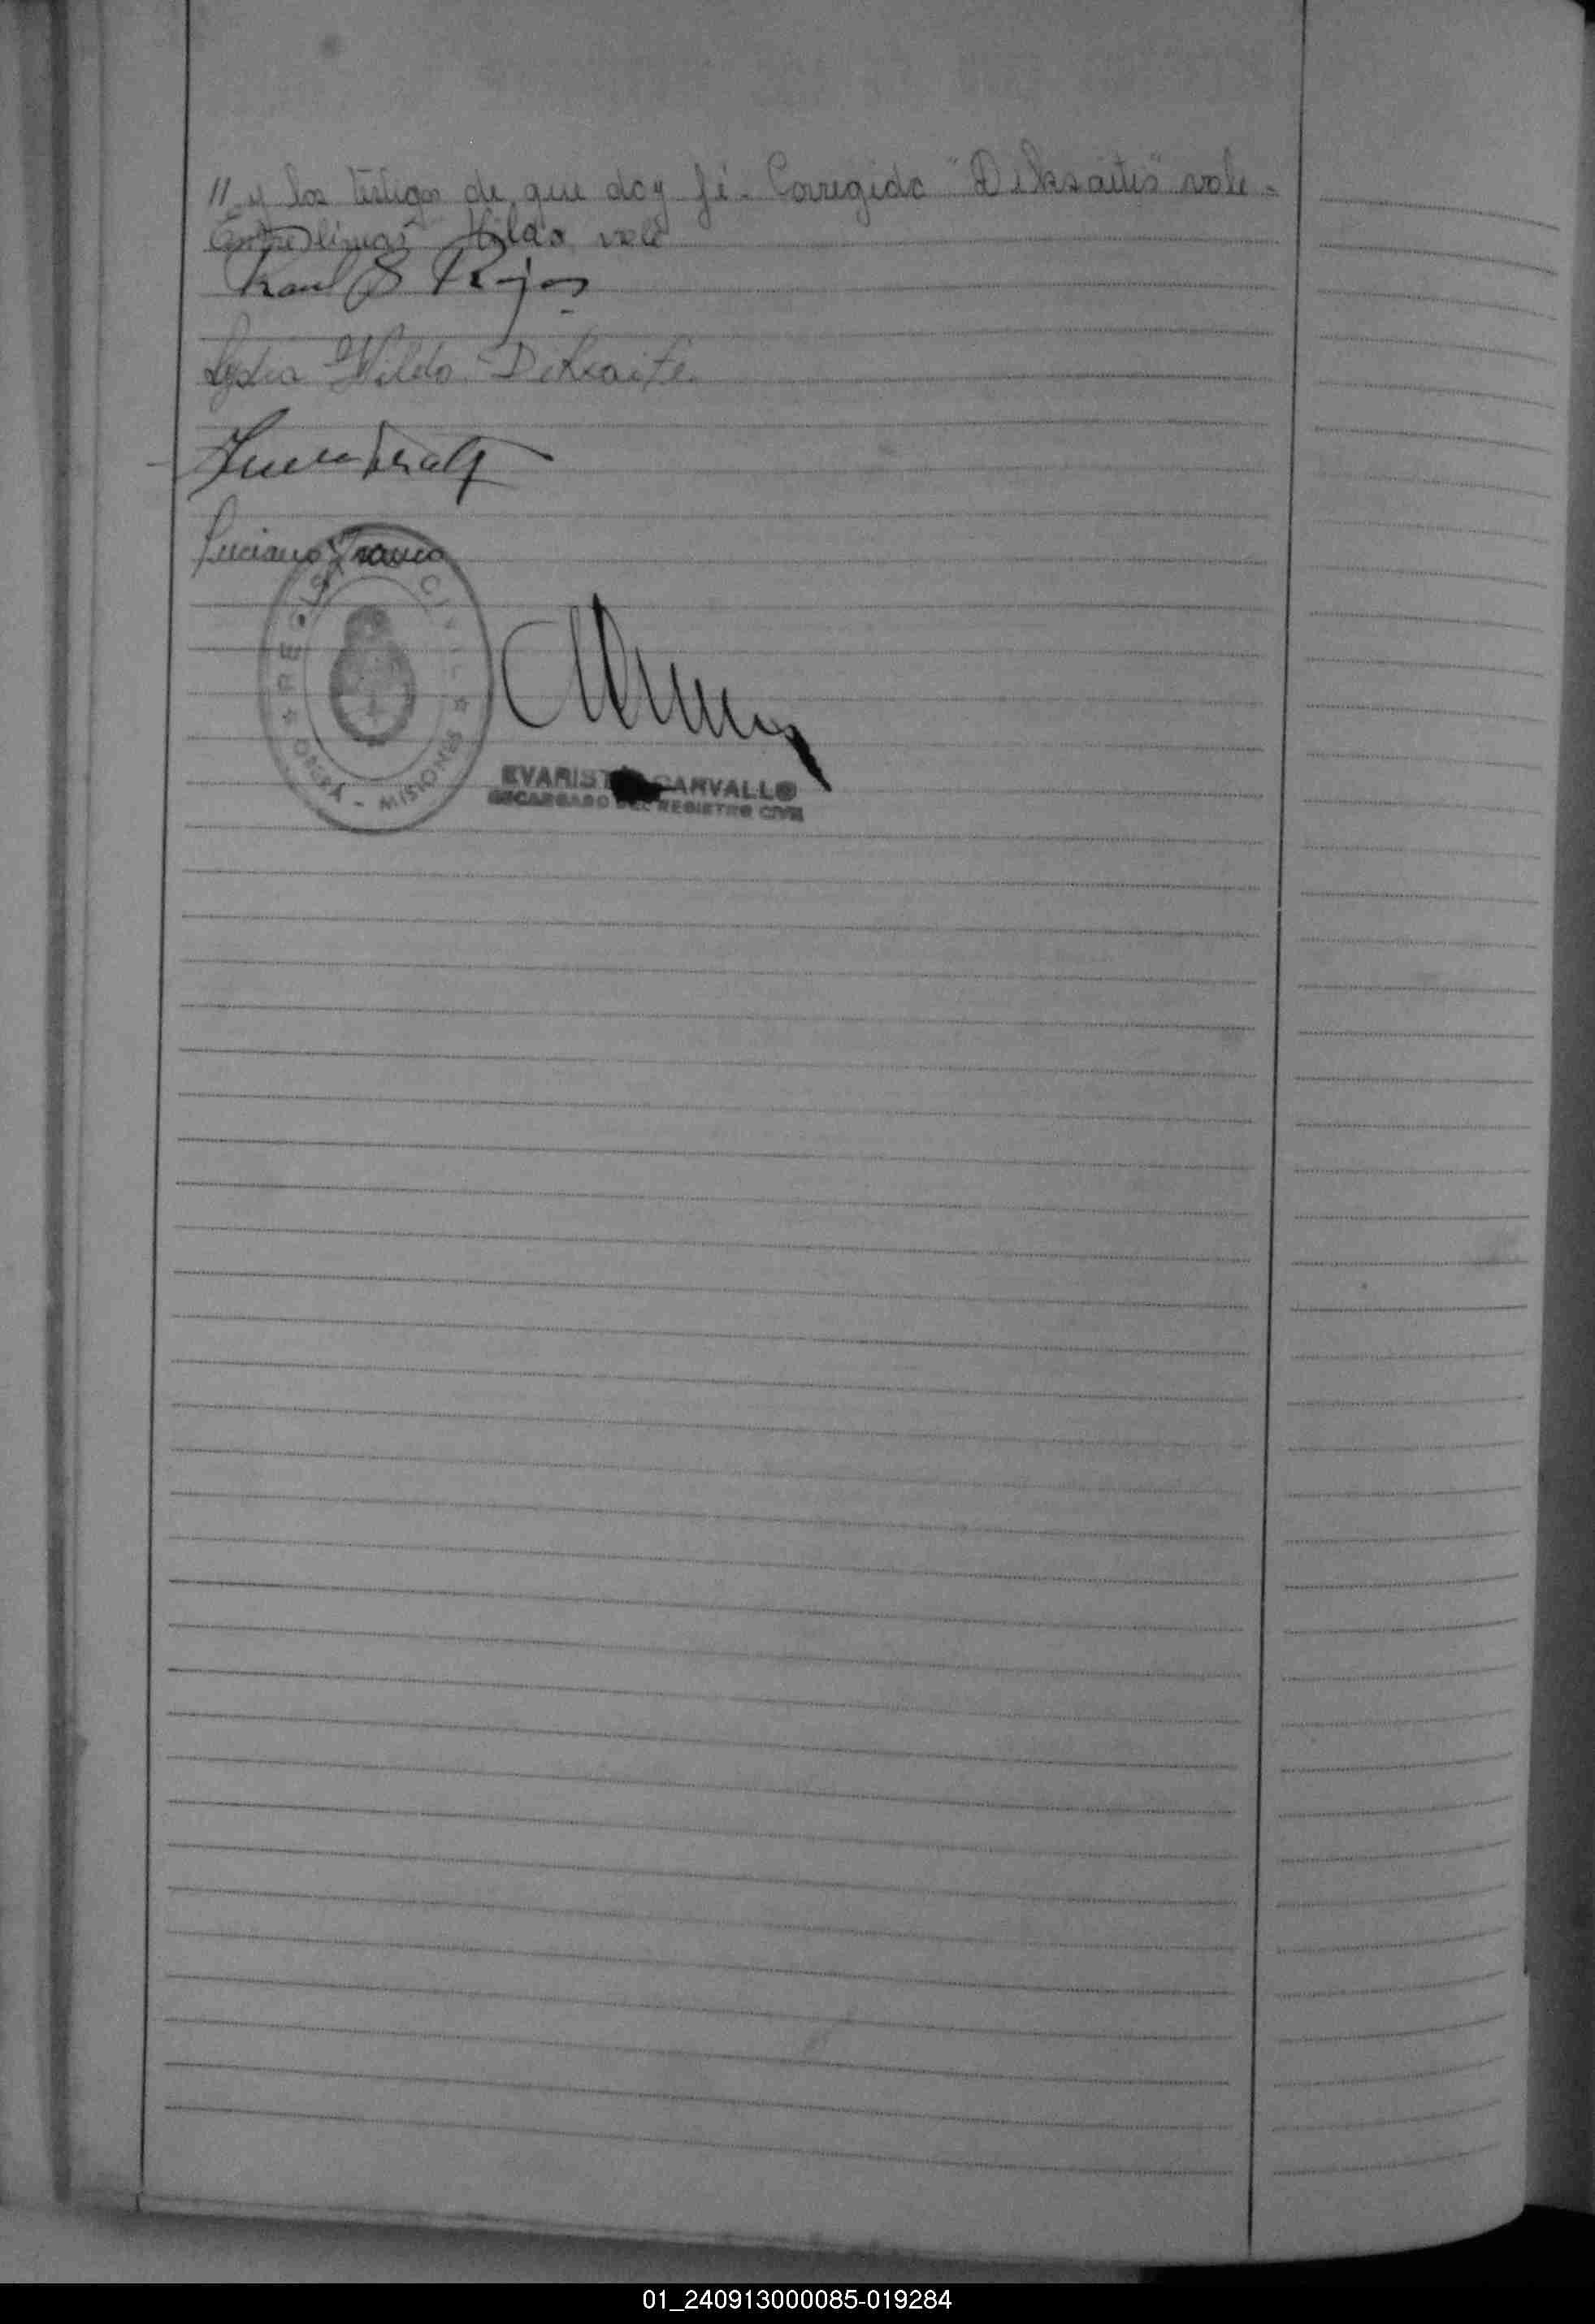 // y los testigos de que doy fé - Corregido "Diksaitis" vale -
Entrelineas Hilda vale
Raul S Rojas
Lydia Hilda Diksaite
Luciano Franco
REGISTRO CIVIL
OBERA - MISIONES
EVARISTO CARVALLO
ENCARGADO DEL REGISTRO CIVIL
01_240913000085-019284